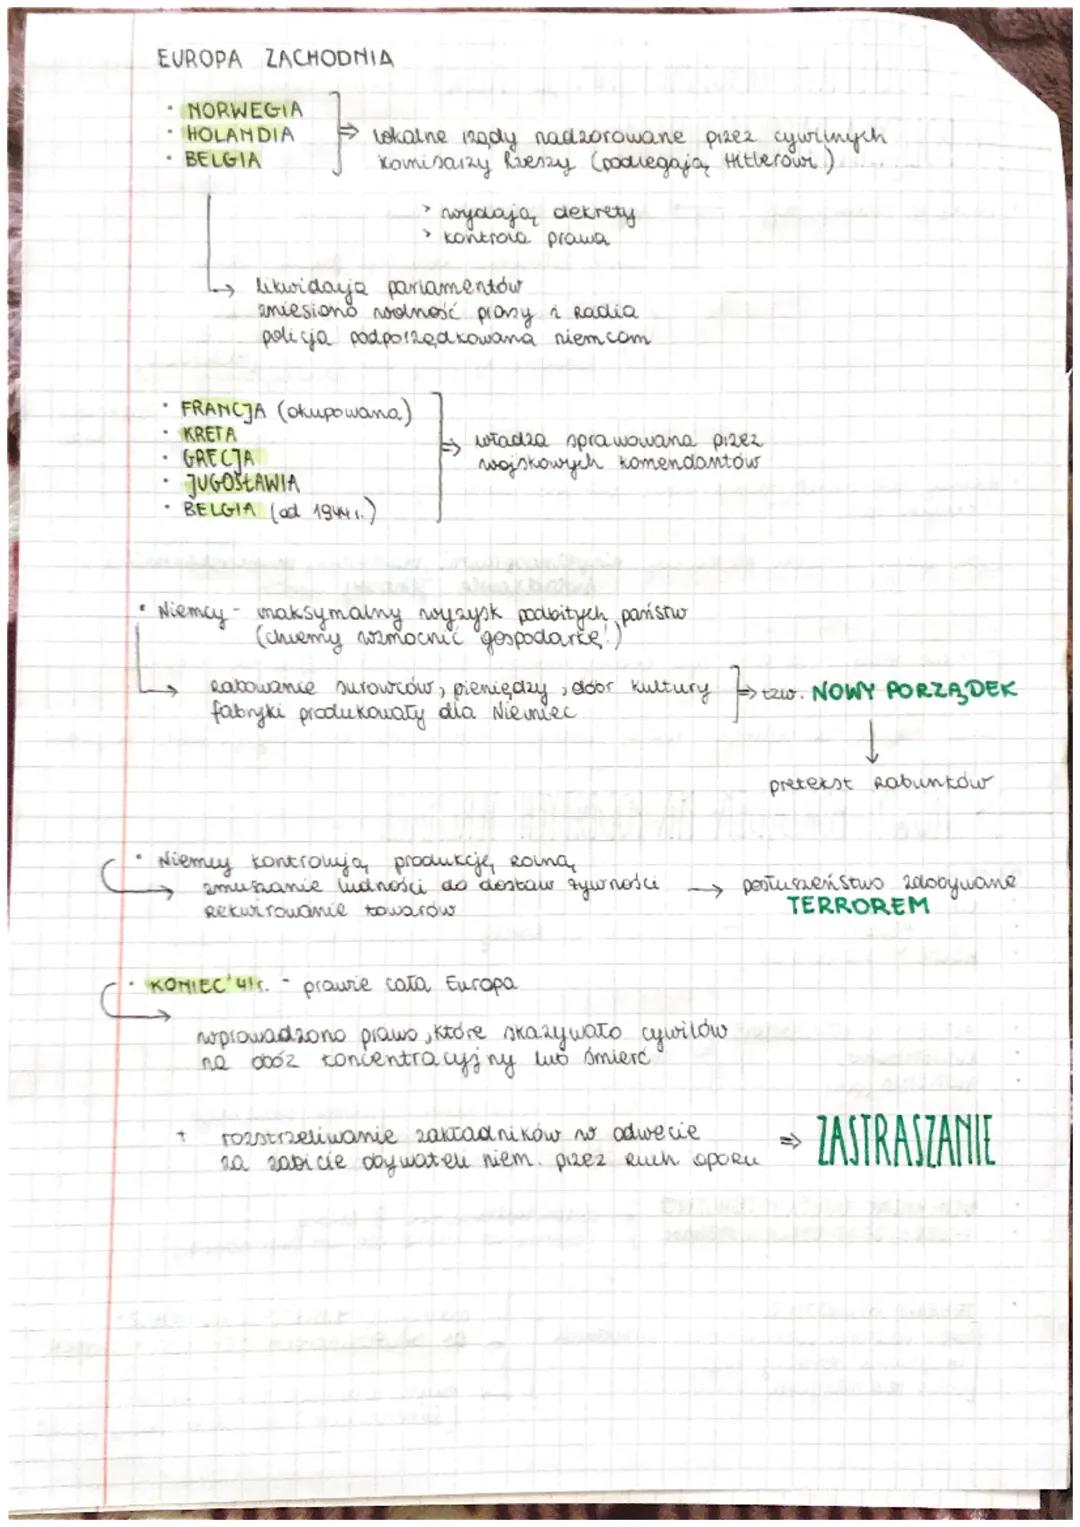 EUROPA ZACHODNIA
· NORWEGIA
· HOLANDIA
· BELGIA
⇒ lokalne rządy nadzorowane przez cywilnych
komisarzy Rzeszy (podlegają Hitlerowi)
> wydają dekrety
> kontrola prawa
↳ likwidacja parlamentów
zniesiono wolność prasy i radia
policja podporządkowana niemcom
· FRANCJA (okupowana)
· KRETA
· GRECJA
· JUGOSŁAWIA
· BELGIA (od 1944 r.)
⇒ władza sprawowana przez
wojskowych komendantów
· Niemcy - maksymalny wyzysk podbitych państw
(chcemy wzmocnić gospodarkę!)
rabowanie surowców, pieniędzy, dóbr kultury → tzw. NOWY PORZĄDEK
fabryki produkowały dla Niemiec
↓
pretekst rabunków
· Niemcy kontrolują produkcję rolną
zmuszanie ludności do dostaw żywności → posłuszeństwo zdobywane
rekwirowanie towarów TERROREM
· KONIEC '41r. - prawie cała Europa
wprowadzono prawo, które skazywało cywilów
na obóz koncentracyjny lub śmierć
+ rozstrzeliwanie zakładników w odwecie ⇒ ZASTRASZANIE
za zabicie obywateli niem. przez ruch oporu